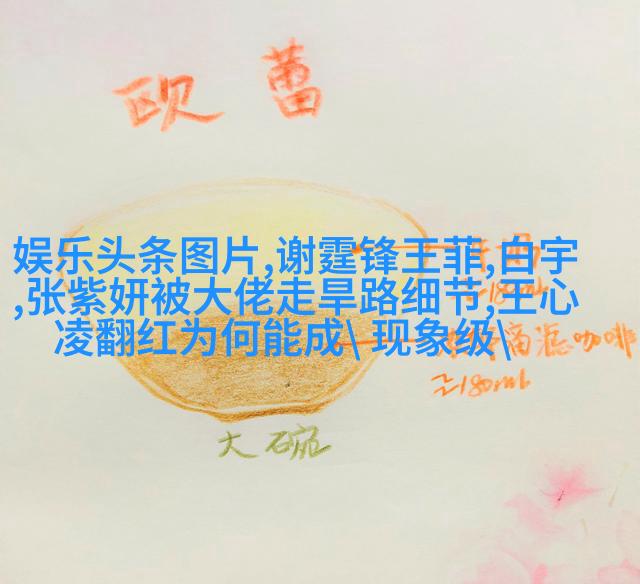 欧蕾
娱乐头条图片,谢霆锋王菲,白宇
,张紫妍被大佬走旱路细节,王心
凌翻红为何能成\ 现象级\
滴滤咖啡
≈180ml
大碗